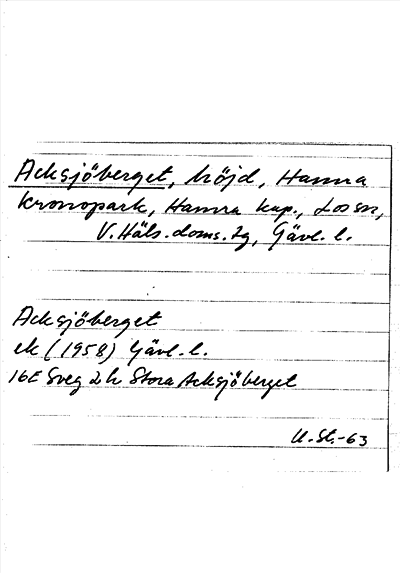 Acksjöberget, höjd, Hamra
Kronopark, Hamra kap., Los sn,
V. Häls. doms. tg, Gävl. l.
Acksjöberget
ek (1958) Gävl. l.
16E Sveg 2h Stora Acksjöberget
U. St.-63